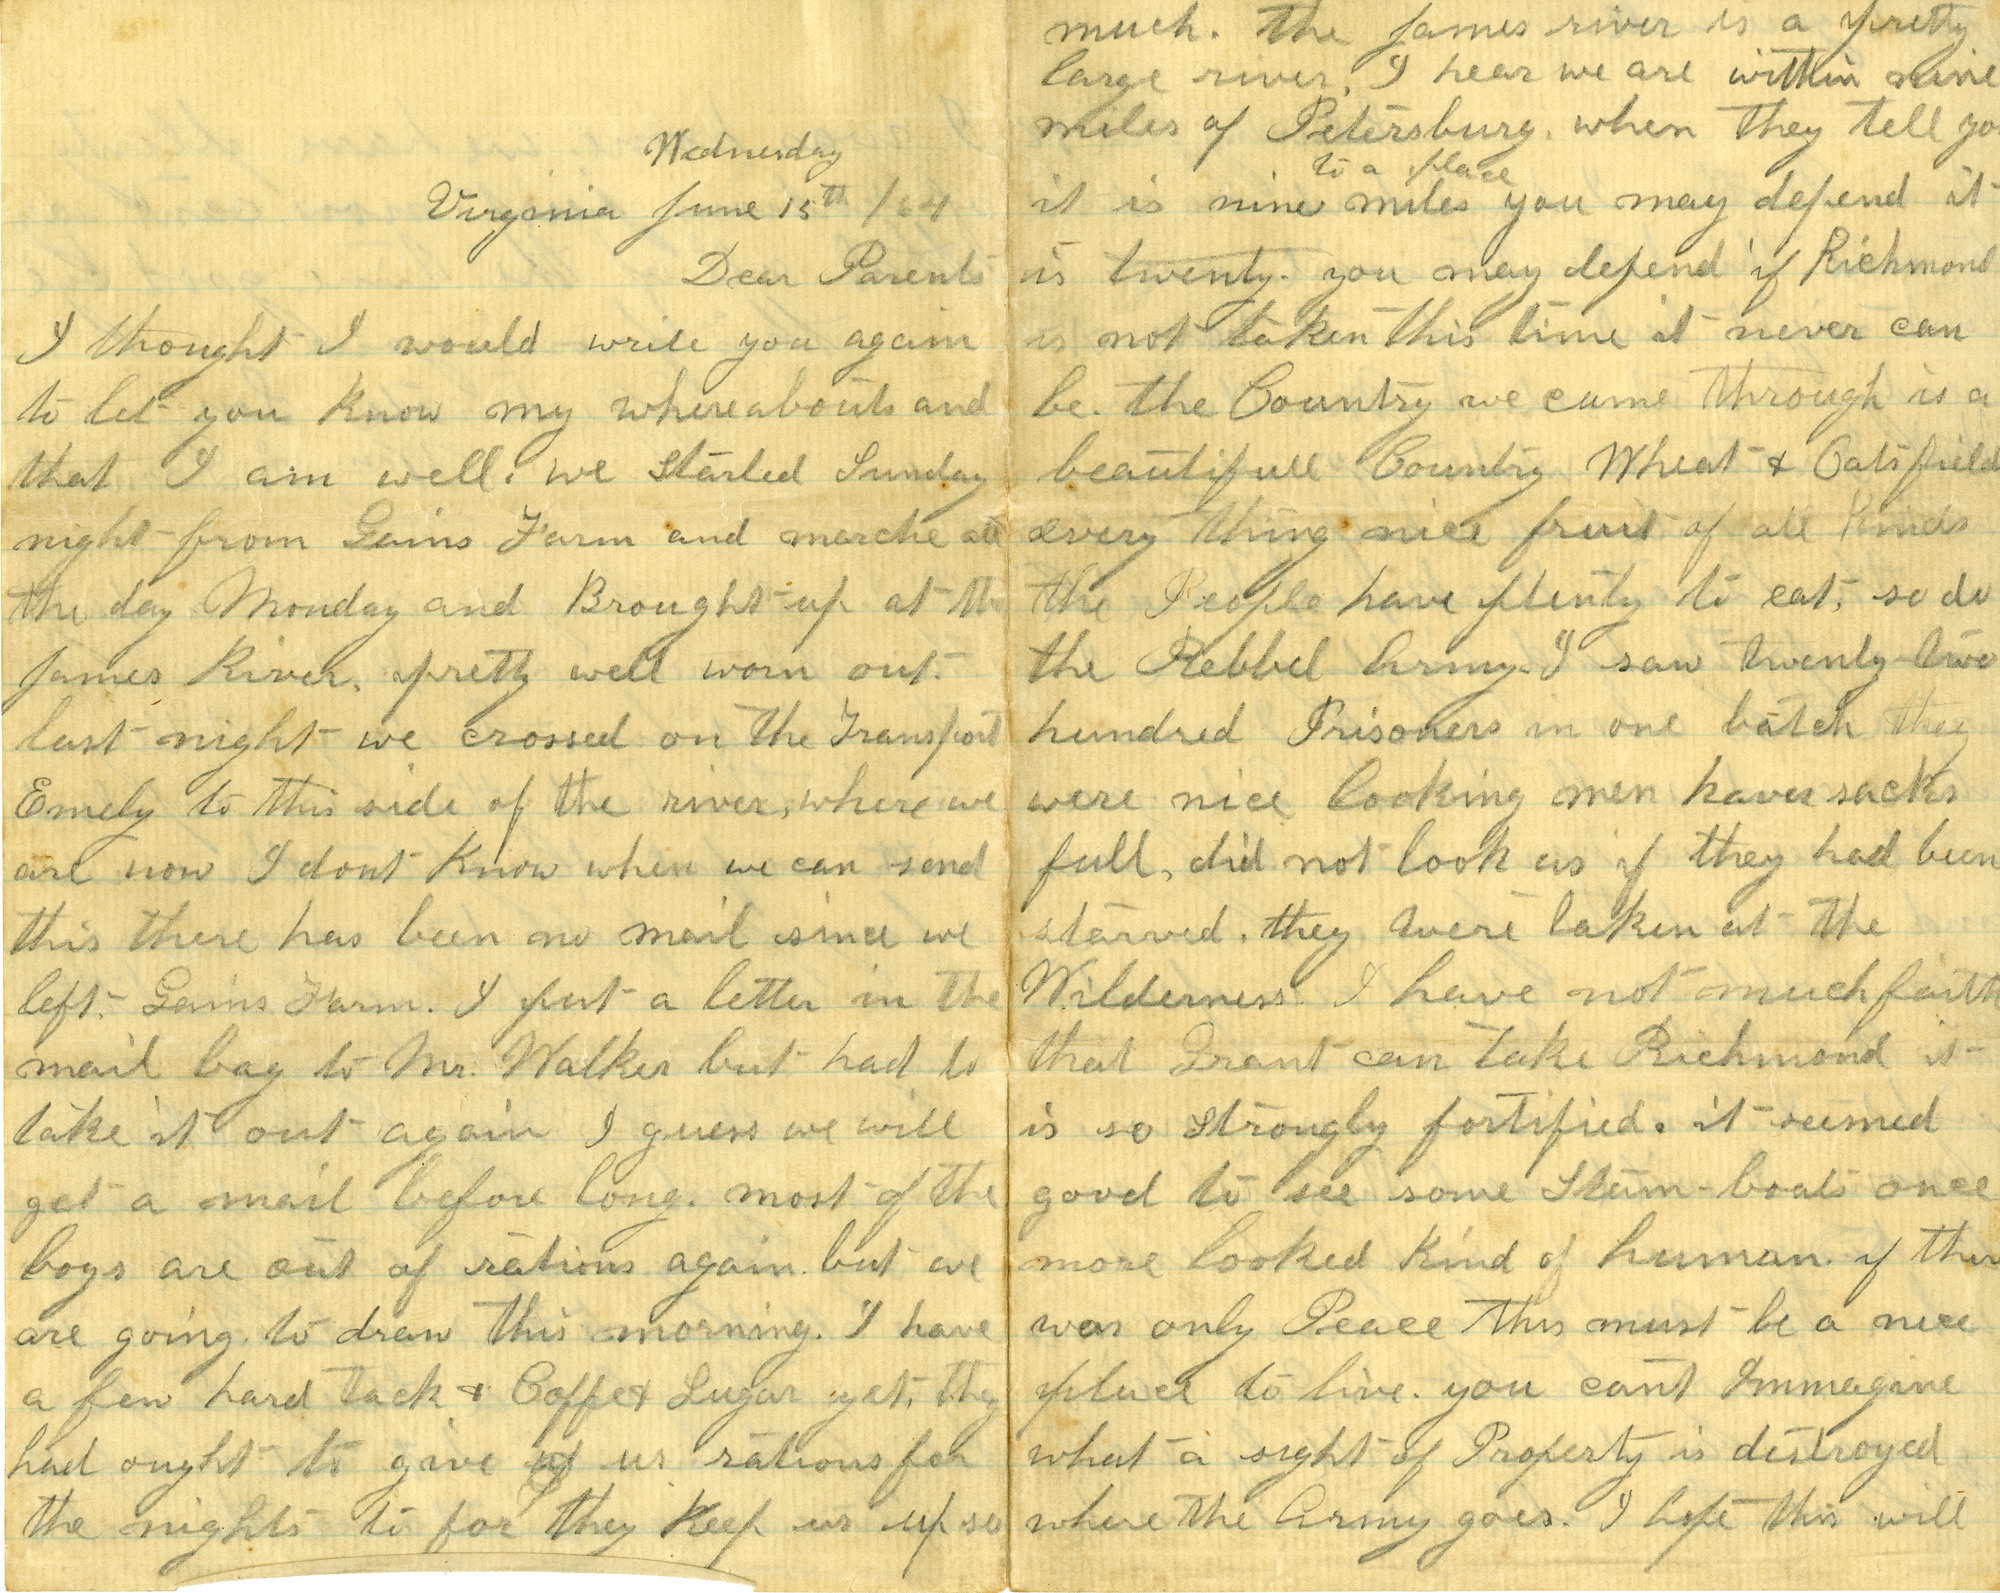 Wednesday
Virginia June 15th /64
Dear Parents
I thought I would write you again
to let you know my whereabouts and
that I am well. we started Sunday
night from Gains Farm and marche all
the day Monday and Brought up at the
James River. pretty well worn out.
last night we crossed on the Transport
Emely to this side of the river, where we
are now I dont know when we can send
this there has been no mail since we
left. Gains Farm. I put a letter in the
mail bag to Mr. Walker but had to
take it out again I guess we will
get a mail before long. most of the
boys are out of rations again. but we
are going to draw this morning. I have
a few hard tack & Coffe & Sugar yet, they
had ought to give us rations for
the nights to for they keep us up so
much. the James river is a pretty
large river, I hear we are within nine
miles of Petersburg. when they tell you
to a place
it is nine miles you may depend it
is twenty. you may depend if Richmond
is not taken this time it never can
be. the Country we came through is a
beautifull Country Wheat & Oats field
every thing nice fruit of all kinds
the People have plenty to eat, so do
the Rebbel Army. I saw twenty-two
hundred Prisoners in one batch they
were nice looking men haversacks
full, did not look as if they had been
starved. they were taken at the
Wilderness. I have not much faith
that Grant can take Richmond it
is so strongly fortified. it seemed
good to see some Steam-boats once
more looked kind of human. if there
was only Peace this must be a nice
place to live. you cant Immagine
what a sight of Property is destroyed
where the Army goes. I hope this will